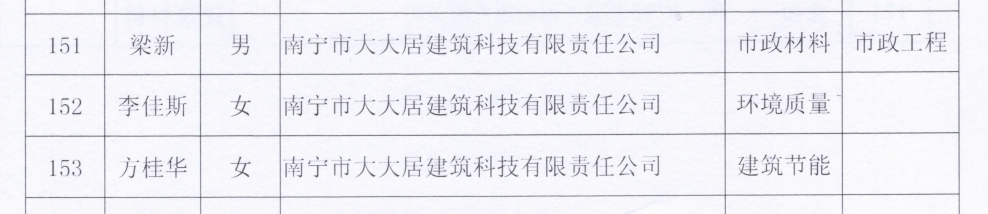 151 梁新 男 南宁市大大居建筑科技有限责任公司 市政材料 市政工程
152 李佳斯 女 南宁市大大居建筑科技有限责任公司 环境质量
153 方桂华 女 南宁市大大居建筑科技有限责任公司 建筑节能